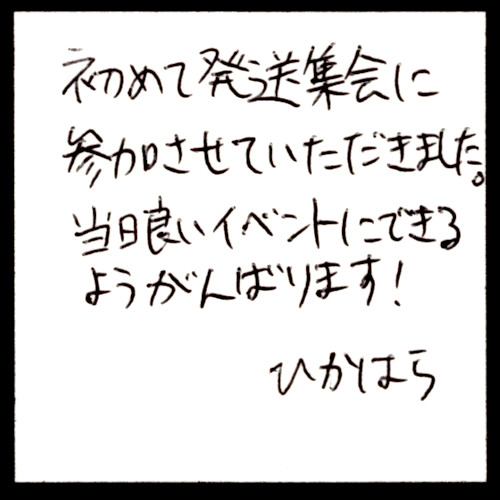 初めて発送集会に
参加させていただきました。
当日良いイベントにできる
ようがんばります！
ひかはら